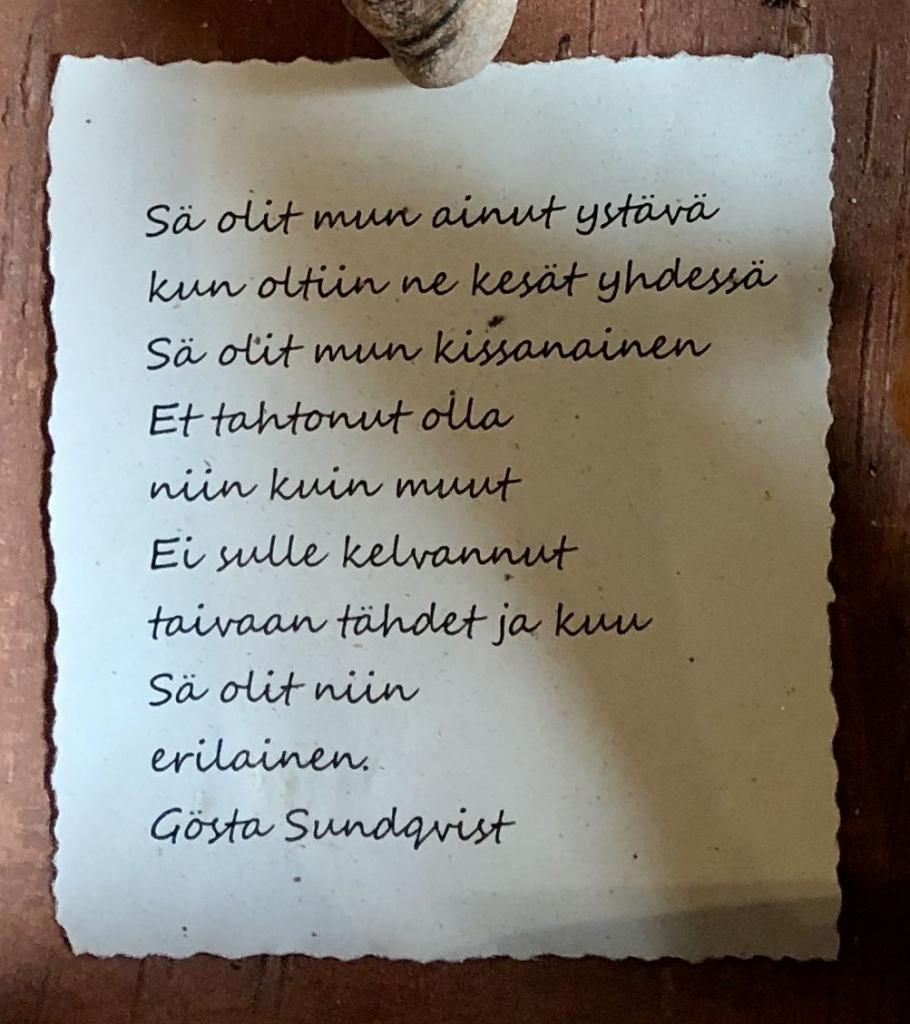 Sä olit mun ainut ystävä
kun oltiin ne kesät yhdessä
Sä olit mun kissanainen
Et tahtonut olla
niin kuin muut
Ei sulle kelvannut
taivaan tähdet ja kuu
Sä olit niin
erilainen.
Gösta Sundqvist